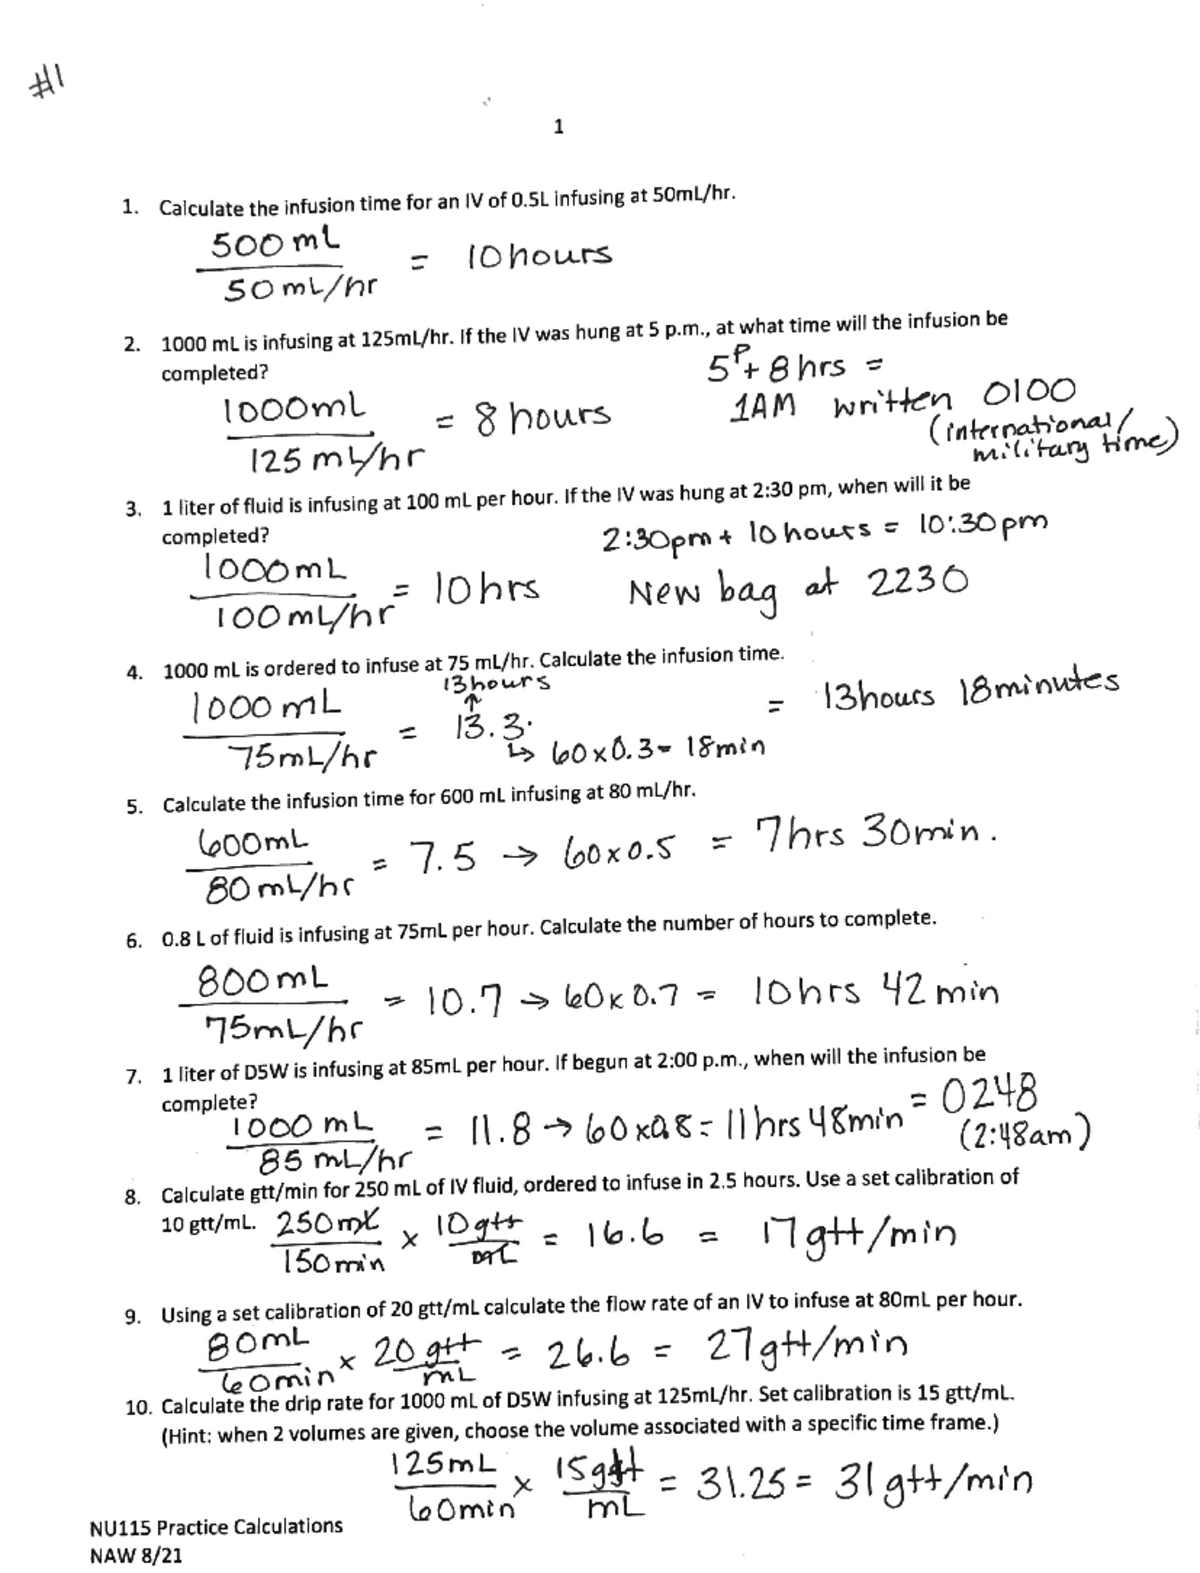 #1
1
1. Calculate the infusion time for an IV of 0.5L infusing at 50mL/hr.
500 mL
= 10 hours
50 mL/hr
2. 1000 mL is infusing at 125mL/hr. If the IV was hung at 5 p.m., at what time will the infusion be
completed?
5P + 8 hrs =
1000mL
= 8 hours
1AM written 0100
(international/
125 mL/hr
military time)
3. 1 liter of fluid is infusing at 100 mL per hour. If the IV was hung at 2:30 pm, when will it be
completed?
2:30pm + 10 hours = 10:30pm
1000mL
= 10hrs
New bag at 2230
100 mL/hr
4. 1000 mL is ordered to infuse at 75 mL/hr. Calculate the infusion time.
13hours
↑
1000 mL
= 13.3.
= 13hours 18minutes
75mL/hr
↳ 60 x 0.3 = 18min
5. Calculate the infusion time for 600 mL infusing at 80 mL/hr.
600mL
= 7.5 → 60 x 0.5 = 7hrs 30min.
80 mL/hr
6. 0.8 L of fluid is infusing at 75mL per hour. Calculate the number of hours to complete.
800mL
= 10.7 → 60 x 0.7 = 10hrs 42 min
75mL/hr
7. 1 liter of D5W is infusing at 85mL per hour. If begun at 2:00 p.m., when will the infusion be
complete?
1000 mL
= 11.8 → 60 x 0.8 = 11hrs 48min = 0248
85 mL/hr
(2:48am)
8. Calculate gtt/min for 250 mL of IV fluid, ordered to infuse in 2.5 hours. Use a set calibration of
10 gtt/mL. 250mL x 10gtt = 16.6 = 17gtt/min
150min mL
9. Using a set calibration of 20 gtt/mL calculate the flow rate of an IV to infuse at 80mL per hour.
80mL x 20 gtt = 26.6 = 27gtt/min
60min mL
10. Calculate the drip rate for 1000 mL of D5W infusing at 125mL/hr. Set calibration is 15 gtt/mL.
(Hint: when 2 volumes are given, choose the volume associated with a specific time frame.)
125mL x 15gtt = 31.25 = 31gtt/min
60min mL
NU115 Practice Calculations
NAW 8/21